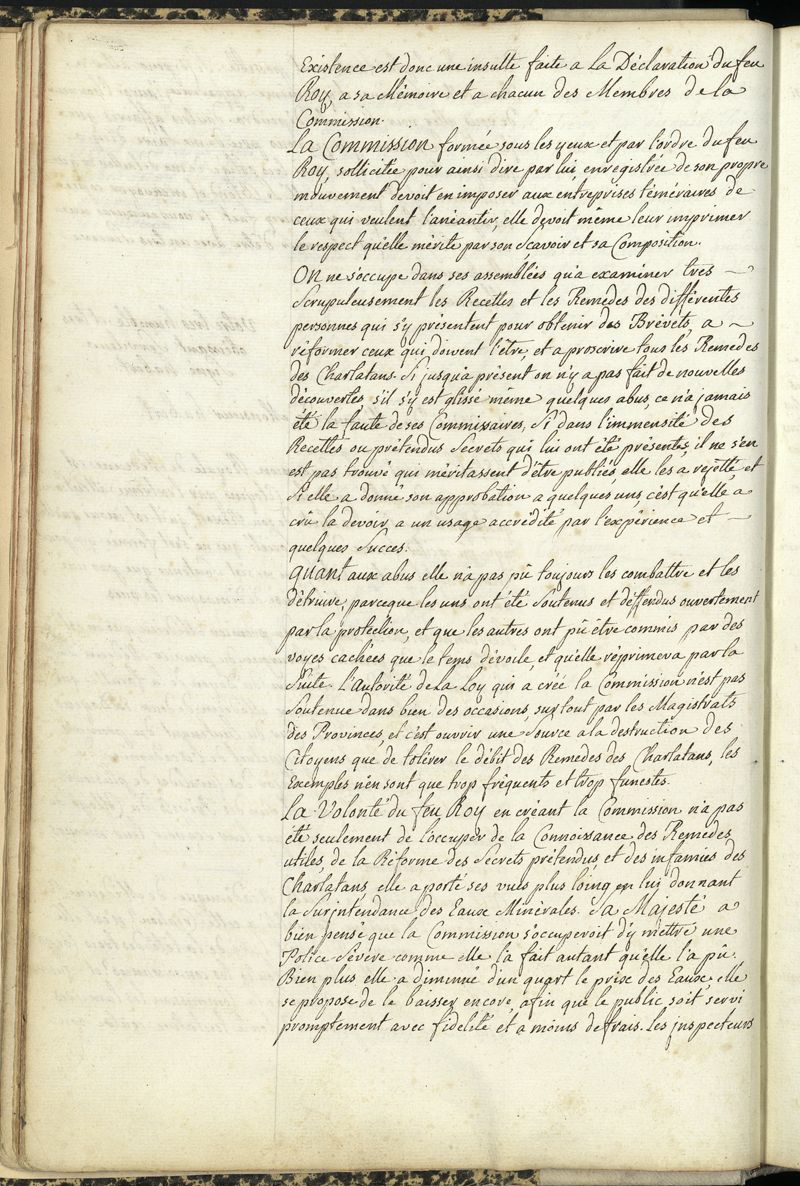 Existence est donc une insulte faite a La Déclaration du feu
Roy, a sa Mémoire et a chacun des Membres de la
Commission.
La Commission formée sous les yeux et par l'ordre du feu
Roy, sollicitée pour ainsi dire par lui, enregistrée de son propre
mouvement devoit en imposer aux entreprises téméraires de
ceux qui veulent l'anéantir, elle devoit meme leur imprimer
le respect qu'elle mérite par son Sçavoir et sa Composition.
On ne s'occupe dans ses assemblées qu'a examiner tres
Scrupuleusement les Recettes et les Remedes des différentes
personnes qui s'y présentent pour obtenir des Brevets, a
réformer ceux qui doivent l'être, et a proscrire tous les Remedes
des Charlatans. Si jusqu'a présent on n'y a pas fait de nouvelles
découvertes s'il s'y est glissé même quelques abus, ce n'a jamais
été la faute de ses Commissaires, Si dans l'immensité des
Recettes ou prétendus Secrets qui lui ont été présentés, il ne s'en
est pas trouvé qui méritassent d'être publiés, elle les a rejetté, et
Si elle a donné son approbation a quelques uns, c'est qu'elle a
crû la devoir, a un usage accrédité par l'expérience et
quelques Succes.
Quant aux abus elle n'a pas pû toujours les combattre et les
détruire, parceque les uns ont été Soutenus et déffendus ouvertement
par la protection, et que les autres ont pû être commis par des
voyes cachées que le tems dévoile, et qu'elle réprimera par la
Suite. L'autorité de La Loy qui a créé la Commission n'est pas
Soutenue dans bien des occasions, sur tout par les Magistrats
des Provinces, et c'est ouvrir une Source a la destruction des
Citoyens que de tolérer le débit des Remedes des Charlatans, les
Exemples n'en sont que trop fréquents et trop funestes.
La Volonté du feu Roy en créant la Commission n'a pas
été seulement de l'occuper de la Connoissance des Remedes
utiles, de la Réforme des Secrets prétendus et des infamies des
Charlatans, elle a porté ses vues plus loing en lui donnant
la Surintendance des Eaux Minérales. Sa Majesté a
bien pensé que la Commission s'occuperoit d'y mettre une
Police Sévere comme elle l'a fait autant qu'elle l'a pû.
Bien plus elle a diminué d'un quart le prix des Eaux, elle
se propose de le baisser encore, afin que le public soit servi
promptement avec fidelité et a moins de frais. Les inspecteurs